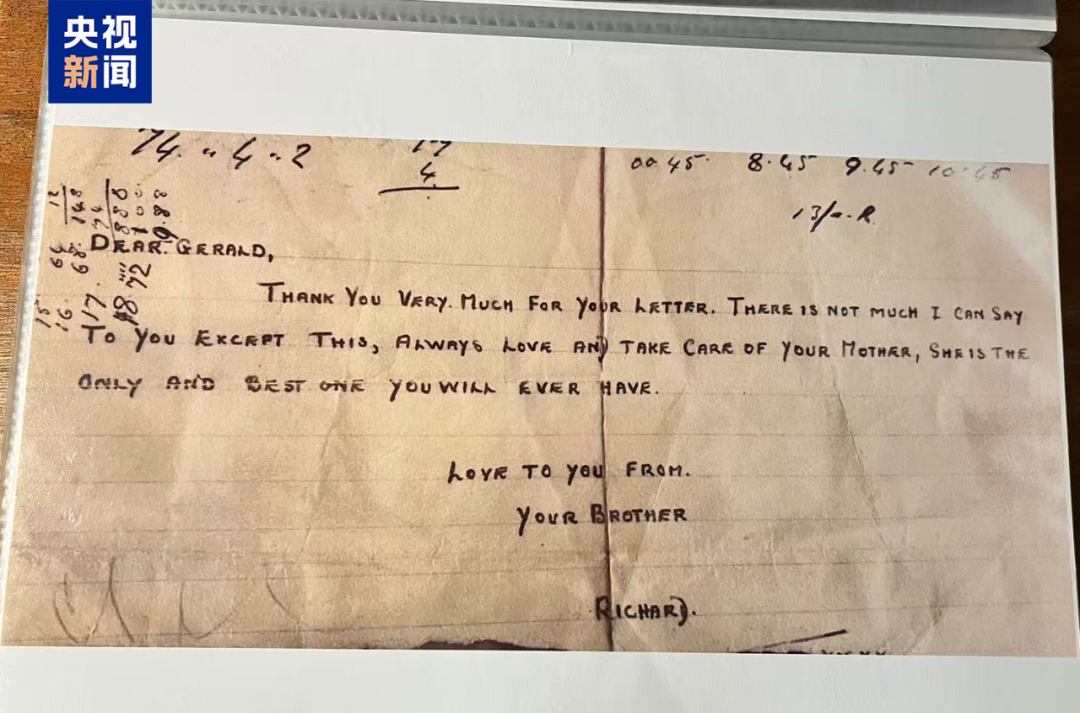 央视
新闻
74. " 4 " 2
17
4.
00 45. 8.45 9.45 10.45
13/-. R.
DEAR. GERALD,
THANK YOU VERY. MUCH FOR YOUR LETTER. THERE IS NOT MUCH I CAN SAY
TO YOU EXCEPT THIS, ALWAYS LOVE AND TAKE CARE OF YOUR MOTHER, SHE IS THE
ONLY AND BEST ONE YOU WILL EVER HAVE.
LOVE TO YOU FROM.
YOUR BROTHER
RICHARD.
12
148
74
888
100
988
64
68.
72
15
16.
17.
18